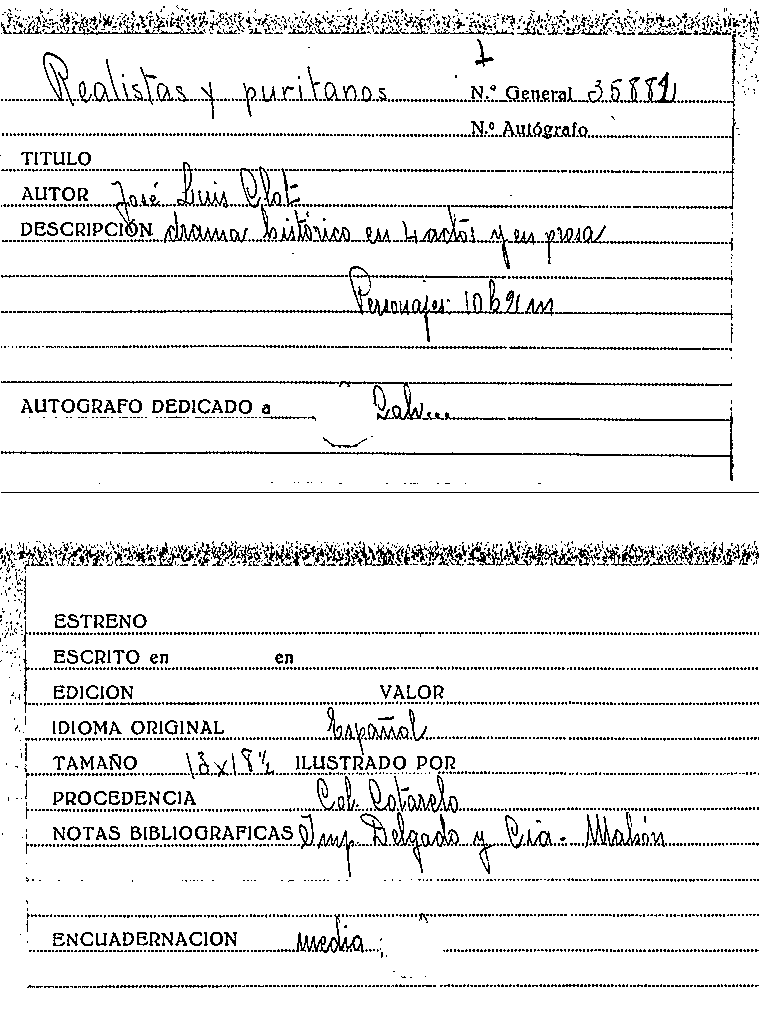 Realistas y puritanos N.º General 35881
N.º Autógrafo
TITULO
AUTOR José Luis Clot
DESCRIPCIÓN drama histórico en 4 actos y en prosa
Personajes: 10 h 2 m
AUTOGRAFO DEDICADO a
ESTRENO
ESCRITO en en
EDICION VALOR
IDIOMA ORIGINAL Español
TAMAÑO 13x18½ ILUSTRADO POR
PROCEDENCIA Col. Cotarelo
NOTAS BIBLIOGRAFICAS Imp. Delgado y Cia. - Mahón
ENCUADERNACION media